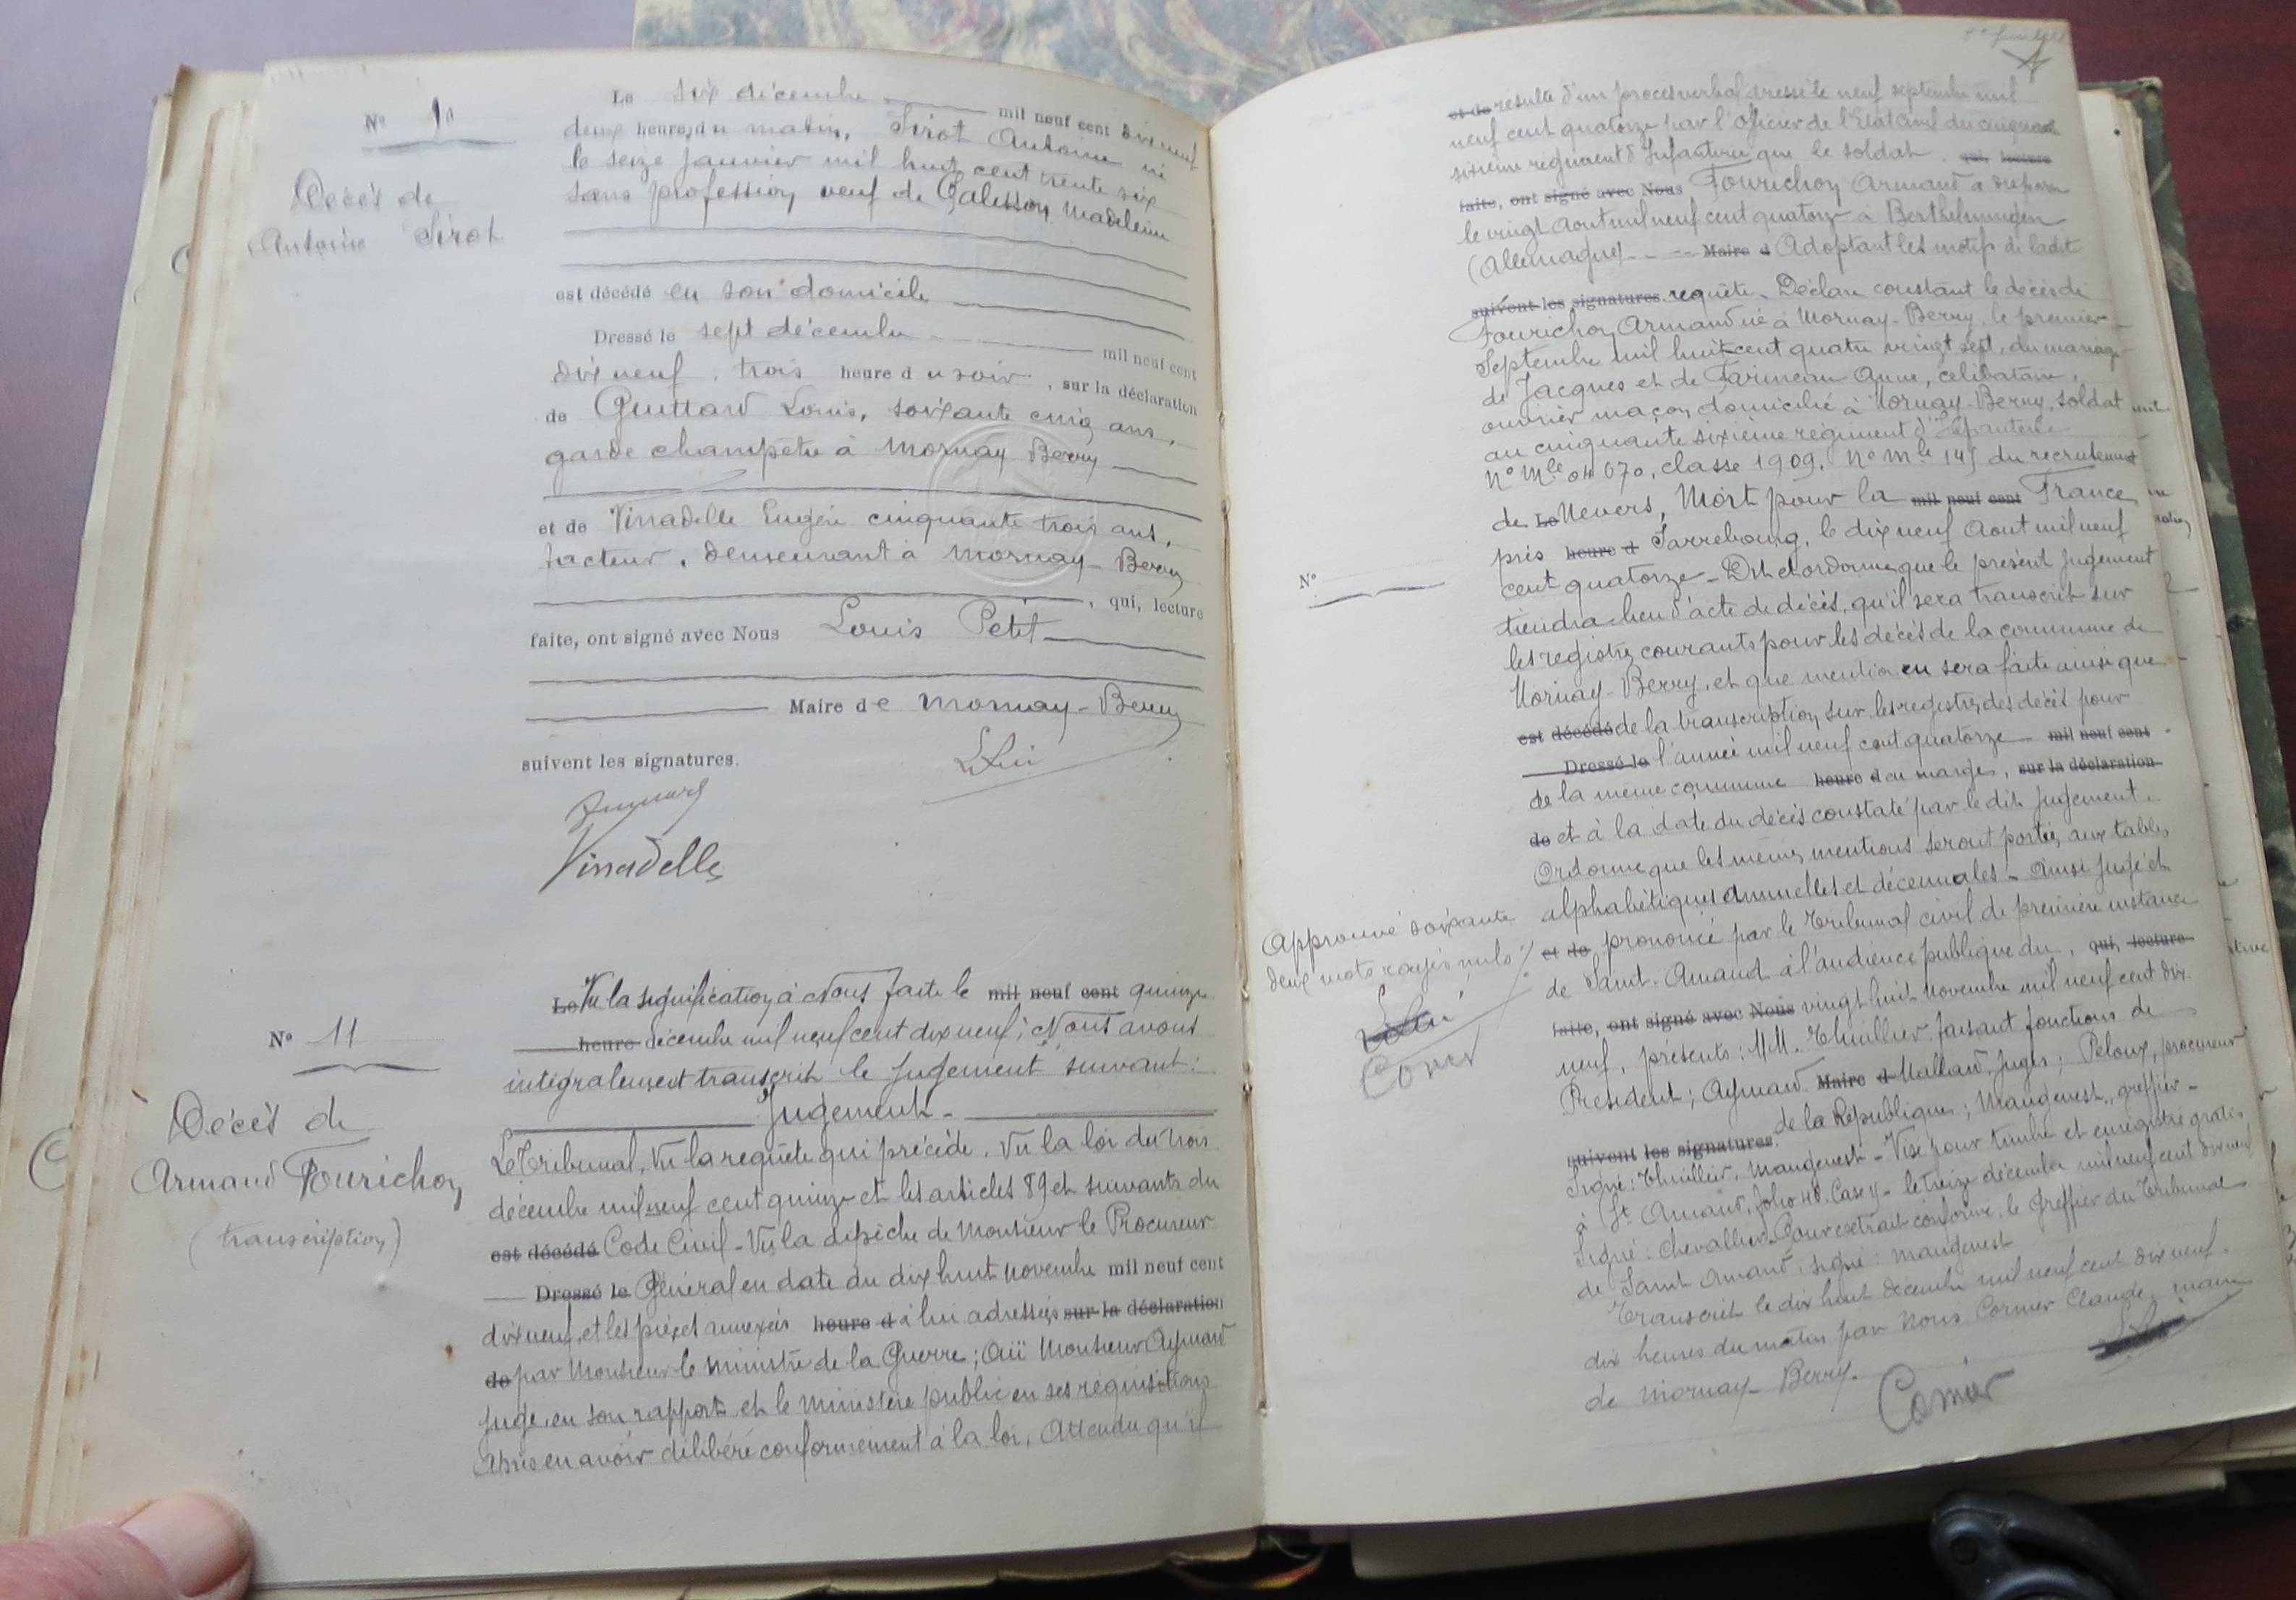 Nº 10
Décès de
Antoine Sirot
Le six décembre mil neuf cent dix neuf
deux heures du matin, Sirot Antoine né
le seize janvier mil huit cent trente six
sans profession, veuf de Galisson Madeleine
est décédé en son domicile
Dressé le sept décembre mil neuf cent
dix neuf, trois heure du soir, sur la déclaration
de Guittard Louis, soixante cinq ans,
garde champêtre à Mornay-Berry
et de Vinadelle Eugène cinquante trois ans,
facteur, demeurant à Mornay-Berry
, qui, lecture
faite, ont signé avec Nous Louis Petit
Maire de Mornay-Berry
suivent les signatures.
Vinadelle
Nº 11
Décès de
Armand Fourichon
(transcription)
Le Vu la signification à Nous faite le mil neuf cent quinze
heure décembre mil neuf cent dix neuf; Nous avons
intégralement transcrit le jugement suivant:
Jugement-
Le Tribunal, Vu la requête qui précède. Vu la loi du trois
décembre mil neuf cent quinze et les articles 89 et suivants du
est décédé Code Civil - Vu la dépêche de Monsieur le Procureur
Dressé le Général en date du dix huit novembre mil neuf cent
dix neuf, et les pièces annexées heure d à lui adressées sur la déclaration
de par Monsieur le ministre de la Guerre; Ouï Monsieur Aymard
juge, en son rapport et le ministère public en ses réquisitions
Après en avoir délibéré conformément à la loi, Attendu qu'il
et de résulte d'un procès verbal dressé le neuf septembre mil
neuf cent quatorze par l'officier de l'Etat Civil du cinquante
sixième régiment d'Infanterie que le soldat qui, lecture
faite, ont signé avec Nous Fourichon Armand a disparu
le vingt Aout mil neuf cent quatorze à Berthelmingen
(Allemagne) - - - Maire d Adoptant les motifs de ladite
suivent les signatures. requête. Déclare constant le décès de
Fourichon Armand né à Mornay-Berry, le premier
Septembre mil huit cent quatre vingt sept, du mariage
de Jacques et de Farineau Anne, célibataire,
ouvrier maçon, domicilié à Mornay-Berry, soldat
au cinquante sixième régiment d'Infanterie
Nº Mle 04670, classe 1909. Nº Mle 145 du recrutement
de Le Nevers, Mort pour la mil neuf cent France,
près heure d Sarrebourg, le dix neuf Aout mil neuf
cent quatorze - Dit et ordonne que le présent jugement
Nº
tiendra lieu d'acte de décès, qu'il sera transcrit sur
les registres courants pour les décès de la commune de
Mornay-Berry, et que mention en sera faite ainsi que
est décédé de la transcription sur les registres des décès pour
Dressé le l'année mil neuf cent quatorze mil neuf cent
de la même commune heure d en marge, sur la déclaration
de et à la date du décès constaté par le dit jugement.
Ordonne que les mêmes mentions seront portées aux tables
alphabétiques annuelles et décennales - Ainsi jugé et
et de prononcé par le Tribunal civil de première instance
de Saint-Amand à l'audience publique du, qui, lecture
faite, ont signé avec Nous vingt huit novembre mil neuf cent dix
neuf, présents: MM. Thuillier faisant fonctions de
Président; Aymard Maire d Mallard, juges; Peloux, procureur
de la République; Maugenest, greffier-
suivent les signatures.
Signé: Thuillier, Maugenest - Visé pour timbre et enregistré gratis
à St Amand, folio 40. Case 4 - le treize décembre mil neuf cent dix neuf
Signé: Chevallier. Pour extrait conforme, le Greffier du Tribunal
de Saint Amand: signé: Maugenest
Transcrit le dix huit décembre mil neuf cent dix neuf.
dix heures du matin par Nous Cornier Claude, maire
de Mornay-Berry.
Cornier
Approuvé soixante
deux mots rayés nuls
Cornier